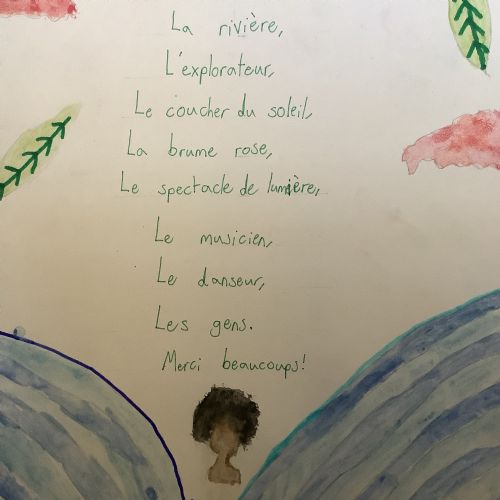 La rivière,
L'explorateur,
Le coucher du soleil,
La brume rose,
Le spectacle de lumière,
Le musicien,
Le danseur,
Les gens.
Merci beaucoups!